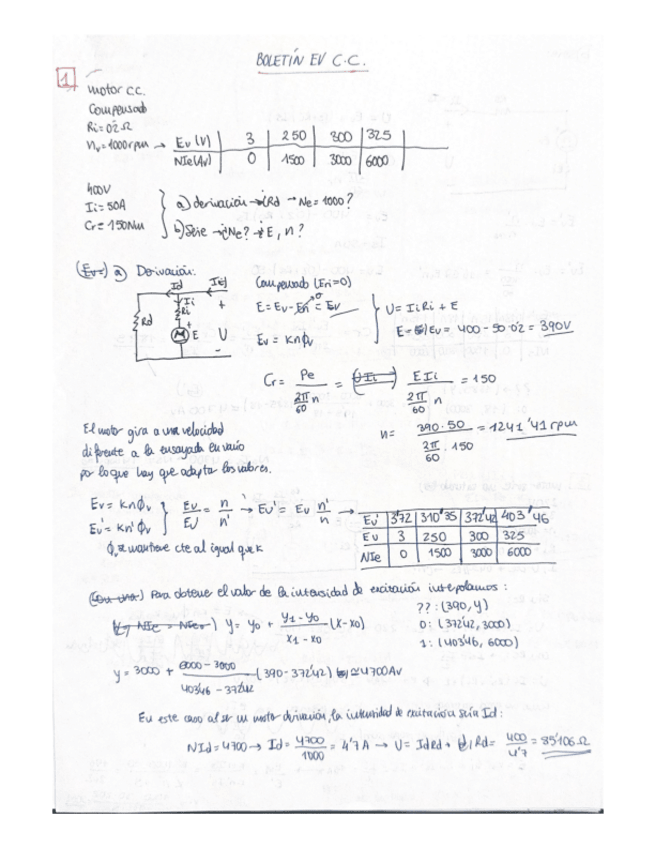 BOLETÍN EV C.C.
1
motor CC.
Compensado
Ri=0'2Ω
nv=1000rpm → Ev(V) 3 250 300 325
NIe(Av) 0 1500 3000 6000
400V
Ii=50A
Cr=150Nm
a) derivación → ¿Rd → Ne=1000?
b) Serie → ¿Ne? → E, n?
a) Derivación:
Id
Ii
Ri
Rd
M E
U
Compensado (Eri=0)
E = Ev - Eri = Ev
Ev = Knϕv
U = IiRi + E
E = Ev = 400 - 50·0'2 = 390V
Cr = Pe / (2π/60 n) = E Ii / (2π/60 n) = 150
n = 390·50 / (2π/60 · 150) = 1241'41 rpm
El motor gira a una velocidad
diferente a la ensayada en vacío
por lo que hay que adaptar los valores.
Ev = Knϕv
Ev' = Kn'ϕv
Ev/Ev' = n/n' → Ev' = Ev n'/n →
Ev' 3'72 310'35 372'42 403'46
Ev 3 250 300 325
NIe 0 1500 3000 6000
ϕv se mantiene cte al igual que K
Para obtener el valor de la intensidad de excitación interpolamos:
y = y0 + (y1 - y0)/(x1 - x0) (x - x0)
??: (390, y)
0: (372'42, 3000)
1: (403'46, 6000)
y = 3000 + (6000 - 3000)/(403'46 - 372'42) (390 - 372'42) ≃ 4700Av
En este caso al ser un motor derivación, la intensidad de excitación sería Id:
NId = 4700 → Id = 4700/1000 = 4'7 A → U = IdRd → Rd = 400/4'7 = 85'106 Ω